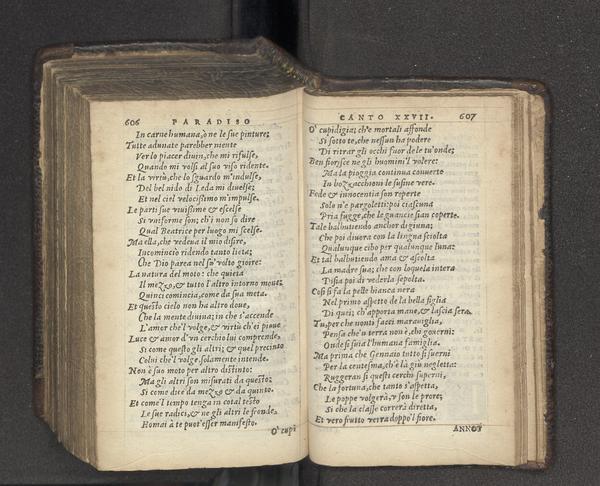 606 PARADISO
In carne humana, ò ne le sue pinture;
Tutte adunate parebber niente
Ver lo piacer diuin, che mi rifulse,
Quando mi volsi al suo viso ridente.
Et la virtù, che lo sguardo m'indulse,
Del bel nido di Leda mi diuelse;
Et nel ciel velocissimo m'impulse.
Le parti sue viuissime & escelse
Si vniforme son; ch'i non so dire
Qual Beatrice per luogo mi scelse.
Ma ella, che vedeua il mio disire,
Incomincio ridendo tanto lieta;
Che Dio parea nel su' volto gioire:
La natura del moto: che quieta
Il mezzo, & tutto l'altro intorno moue;
Quinci comincia, come da sua meta.
Et questo cielo non ha altro doue,
Che la mente diuina; in che s'accende
L'amor che'l volge, & virtù ch'ei pioue
Luce & amor d'vn cerchio lui comprende,
Si come questo gli altri; & quel precinto
Colui che'l volge, solamente intende.
Non è suo moto per altro distinto:
Ma gli altri son misurati da questo;
Si come dice da mezzo & da quinto.
Et come'l tempo tenga in cotal testo
Le sue radici, & ne gli altri le fronde,
Homai à te puot'esser manifesto.
O' cupi
CANTO XXVII. 607
O' cupidigia; che mortali affonde
Si sotto te, che nessun ha podere
Di ritrar gli occhi fuor de le tu'onde;
Ben fiorisce ne gli huomini'l volere:
Ma la pioggia continua conuerte
In bozzacchioni le susine vere.
Fede & innocentia son reperte
Solo n'e pargoletti: poi ciascuna
Pria fugge, che le guancie sian coperte.
Tale balbutiendo anchor digiuna;
Che poi diuora con la lingua sciolta
Qualunque cibo per qualunque luna:
Et tal balbutiendo ama & ascolta
La madre sua; che con loquela intera
Disia poi di vederla sepolta.
Cosi si fa la pelle bianca nera
Nel primo aspetto de la bella figlia
Di quei; ch'apporta mane, & lascia sera.
Tu, per che non ti facci marauiglia,
Pensa che'n terra non è, che gouerni:
Onde si suia l'humana famiglia.
Ma prima che Gennaio tutto si suerni
Per la centesma, ch'è là giu negletta:
Ruggeran si questi cerchi superni,
Che la fortuna, che tanto s'aspetta,
Le poppe volgerà, v son le prore;
Si che la classe correrà diretta,
Et vero frutto verra doppo'l fiore.
ANNOT